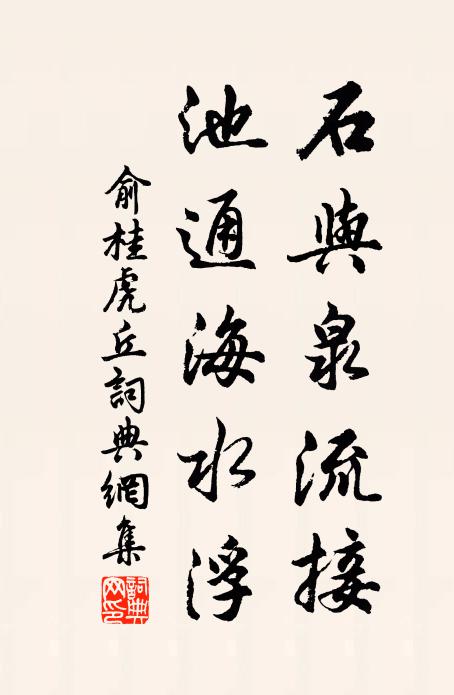 石與泉流接
池通海水浮
俞桂虎丘詞典網集
詞典網印